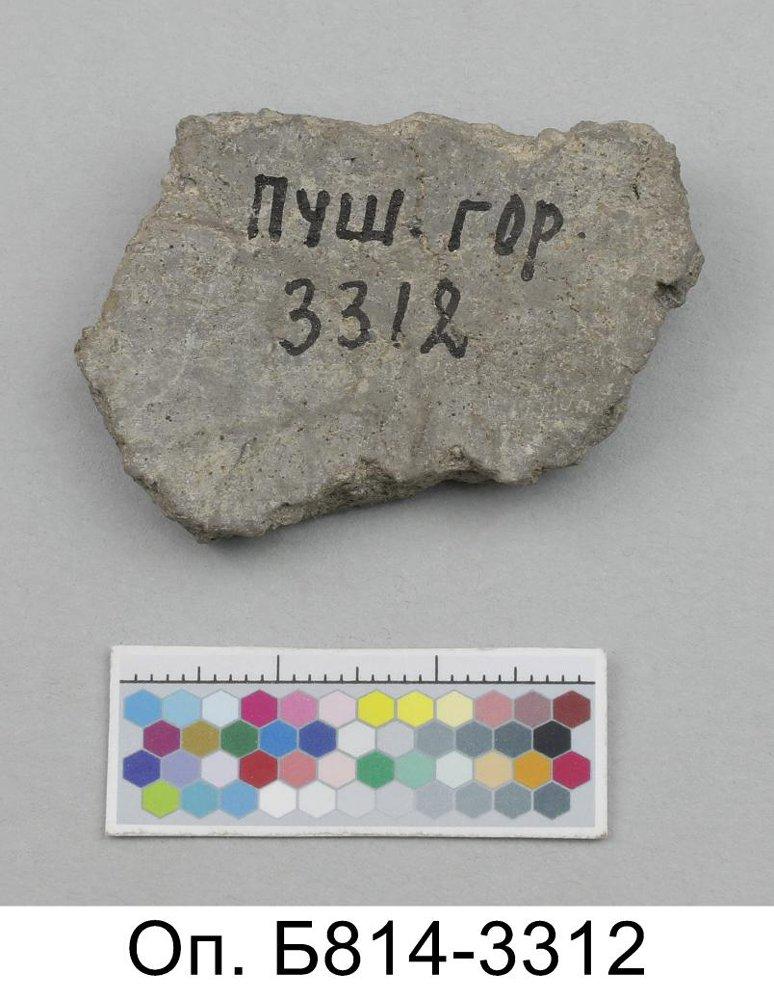 ПУШ. ГОР.
3312
Оп. Б814-3312